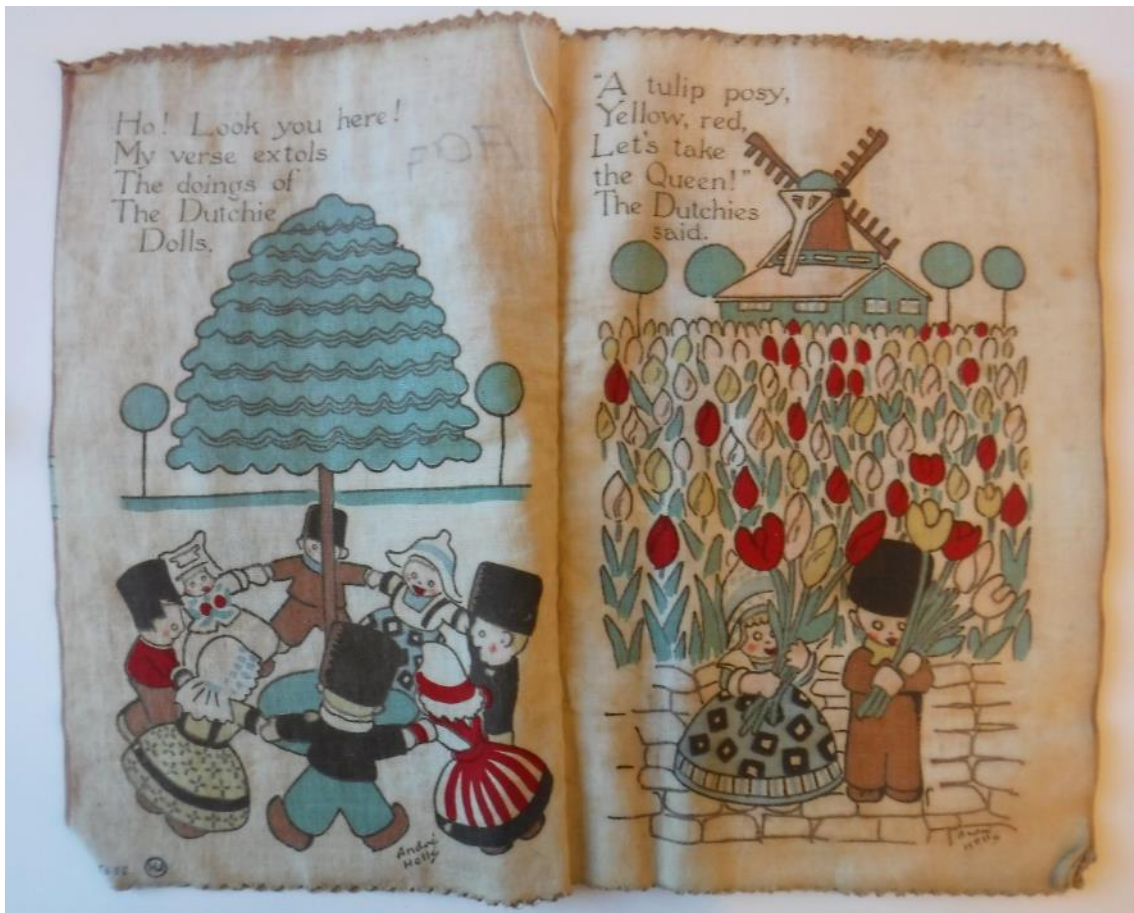 Ho! Look you here!
My verse extols
The doings of
The Dutchie
Dolls.
André
Hellé
"A tulip posy,
Yellow, red,
Let's take
the Queen!"
The Dutchies
said.
André
Hellé